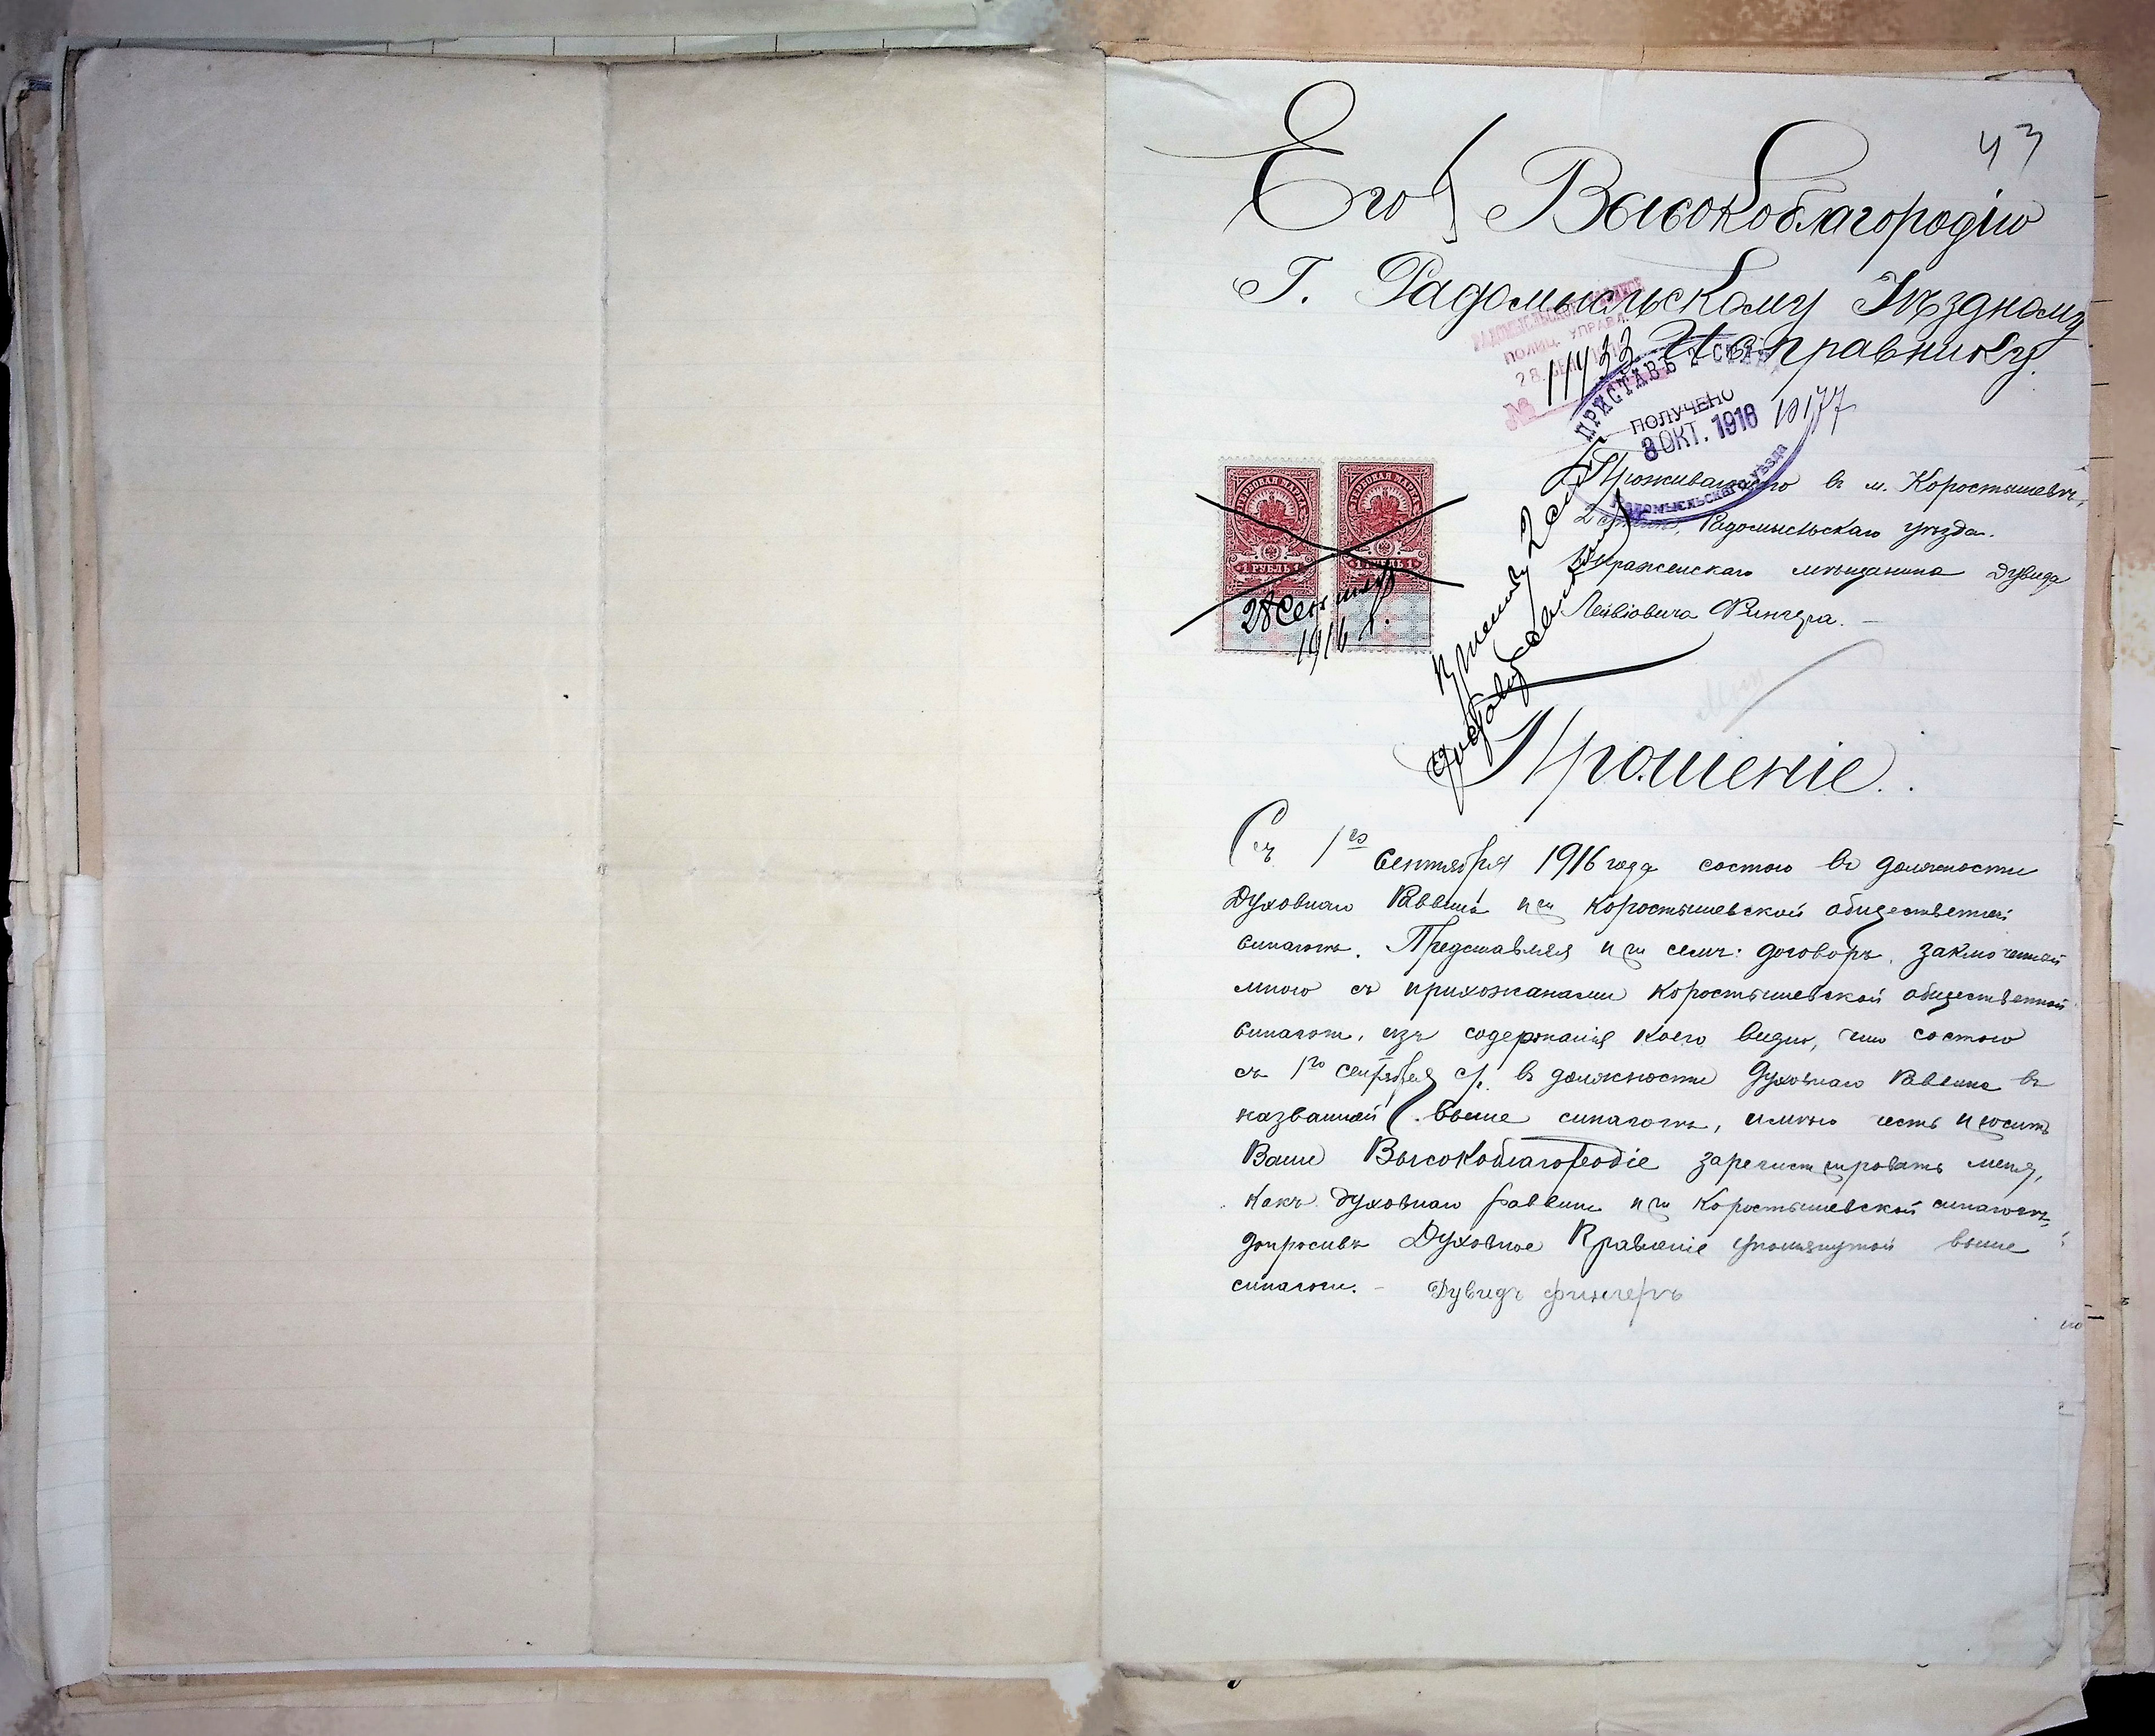 43
Его Высокоблагородію
Г. Радомысльскому Уѣздному
Исправнику.
РАДОМЫСЛЬСКОЕ УѢЗДНОЕ
ПОЛИЦ. УПРАВЛ.
28 СЕН
№ 11433
ПРИСТАВЪ 2 СТАНА
ПОЛУЧЕНО
8 ОКТ. 1916
РАДОМЫСЛЬСКАГО УѢЗДА
10177
Проживающаго въ м. Коростышевѣ,
2 стана, Радомысльскаго уѣзда.
мѣщанина Дувида
Лейвіовича Фингера. —
ГЕРБОВАЯ МАРКА
1 РУБЛЬ 1
ГЕРБОВАЯ МАРКА
1 РУБЛЬ 1
28 Сентября
1916 г.
Приставу 2 стана
Прошеніе.
Съ 1го Сентября 1916 года состою въ должности
Духовнаго Раввина при Коростышевской общественной
синагогѣ. Представляя при семъ: договоръ, заключенный
мною съ прихожанами Коростышевской общественной
синагоги, изъ содержанія коего видно, что состою
съ 1го сентября с/г. въ должности Духовнаго Раввина въ
названной выше синагогѣ, имѣю честь просить
Ваше Высокоблагородіе зарегистрировать меня,
какъ духовнаго раввина при Коростышевской синагогѣ,
допросивъ Духовное Правленіе упомянутой выше
синагоги. — Дувидъ Фингеръ